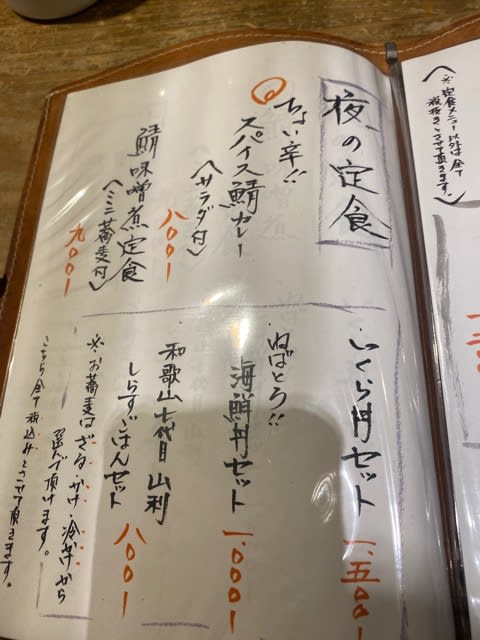 夜の定食
ちょい辛!!
スパイス鯖カレー
(サラダ付)
八〇〇ー
鯖味噌煮定食
(ミニ蕎麦付)
九〇〇ー
いくら丼セット
一、五〇〇ー
ねばとろ!!
海鮮丼セット
一、〇〇〇ー
和歌山七代目山利
しらすごはんセット
八〇〇ー
※お蕎麦はざる・かけ・冷かけから
選んで頂けます。
こちら全て税込みとさせて頂きます。
(※定食メニュー以外は全て
税抜きとさせて頂きます。)